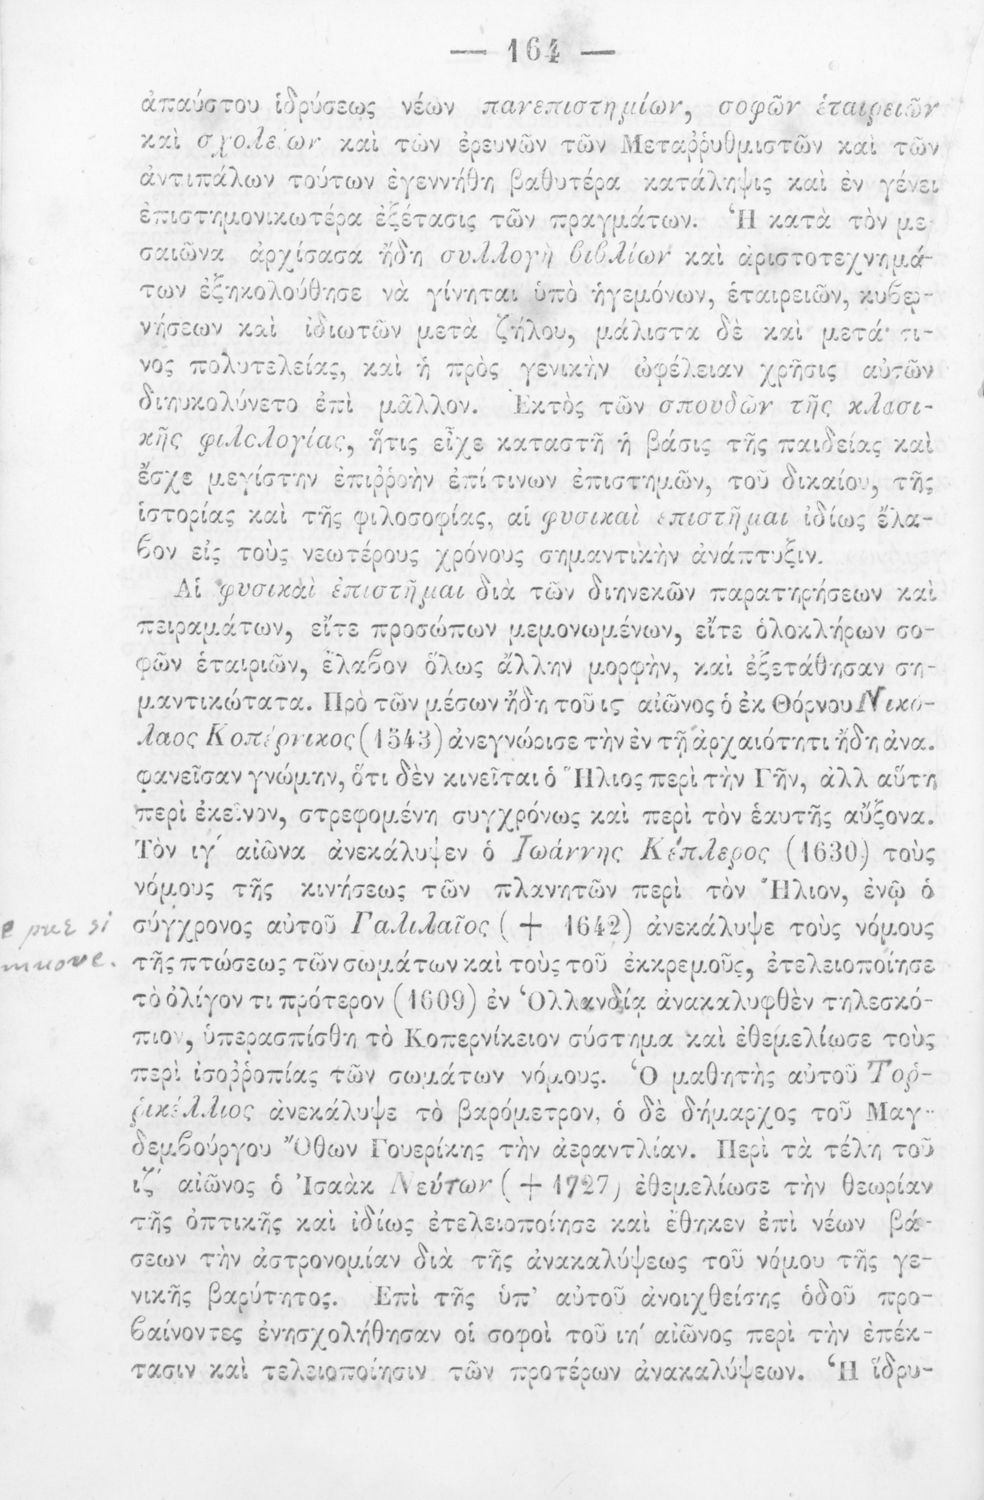 — 164 —
ἀπαύστου ἱδρύσεως νέων πανεπιστημίων, σοφῶν ἑταιρειῶν
καὶ σχολείων καὶ τῶν ἐρευνῶν τῶν Μεταῤῥυθμιστῶν καὶ τῶν
ἀντιπάλων τούτων ἐγεννήθη βαθυτέρα κατάληψις καὶ ἐν γένει
ἐπιστημονικωτέρα ἐξέτασις τῶν πραγμάτων. Ἡ κατὰ τὸν με-
σαιῶνα ἀρχίσασα ἤδη συλλογὴ βιβλίων καὶ ἀριστοτεχνημά-
των ἐξηκολούθησε νὰ γίνηται ὑπὸ ἡγεμόνων, ἑταιρειῶν, κυβερ-
νήσεων καὶ ἰδιωτῶν μετὰ ζήλου, μάλιστα δὲ καὶ μετά τι-
νος πολυτελείας, καὶ ἡ πρὸς γενικὴν ὠφέλειαν χρῆσις αὐτῶν
διηυκολύνετο ἐπὶ μᾶλλον. Ἐκτὸς τῶν σπουδῶν τῆς κλασι-
κῆς φιλολογίας, ἥτις εἶχε καταστῆ ἡ βάσις τῆς παιδείας καὶ
ἔσχε μεγίστην ἐπιῤῥοὴν ἐπί τινων ἐπιστημῶν, τοῦ δικαίου, τῆς
ἱστορίας καὶ τῆς φιλοσοφίας, αἱ φυσικαὶ ἐπιστῆμαι ἰδίως ἔλα-
βον εἰς τοὺς νεωτέρους χρόνους σημαντικὴν ἀνάπτυξιν.
Αἱ φυσικαὶ ἐπιστῆμαι διὰ τῶν διηνεκῶν παρατηρήσεων καὶ
πειραμάτων, εἴτε προσώπων μεμονωμένων, εἴτε ὁλοκλήρων σο-
φῶν ἑταιριῶν, ἔλαβον ὅλως ἄλλην μορφὴν, καὶ ἐξετάθησαν ση-
μαντικώτατα. Πρὸ τῶν μέσων ἤδη τοῦ ις αἰῶνος ὁ ἐκ Θόρνου Νικό-
λαος Κοπέρνικος (1543) ἀνεγνώρισε τὴν ἐν τῇ ἀρχαιότητι ἤδη ἀνα.
φανεῖσαν γνώμην, ὅτι δὲν κινεῖται ὁ Ἥλιος περὶ τὴν Γῆν, ἀλλ αὕτη
περὶ ἐκεῖνον, στρεφομένη συγχρόνως καὶ περὶ τὸν ἑαυτῆς αὔξονα.
Τὸν ιγ΄ αἰῶνα ἀνεκάλυψεν ὁ Ἰωάννης Κέπλερος (1630) τοὺς
νόμους τῆς κινήσεως τῶν πλανητῶν περὶ τὸν Ἥλιον, ἐνῷ ὁ
σύγχρονος αὐτοῦ Γαλιλαῖος ( † 1642) ἀνεκάλυψε τοὺς νόμους
τῆς πτώσεως τῶν σωμάτων καὶ τοὺς τοῦ ἐκκρεμοῦς, ἐτελειοποίησε
τὸ ὀλίγον τι πρότερον (1609) ἐν Ὁλλανδίᾳ ἀνακαλυφθὲν τηλεσκό-
πιον, ὑπερασπίσθη τὸ Κοπερνίκειον σύστημα καὶ ἐθεμελίωσε τοὺς
περὶ ἰσοῤῥοπίας τῶν σωμάτων νόμους. Ὁ μαθητὴς αὐτοῦ Τοῤ-
ῥικέλλιος ἀνεκάλυψε τὸ βαρόμετρον, ὁ δὲ δήμαρχος τοῦ Μαγ-
δεμβούργου Ὄθων Γουερίκης τὴν ἀεραντλίαν. Περὶ τὰ τέλη τοῦ
ιζ΄ αἰῶνος ὁ Ἰσαὰκ Νεύτων ( † 1727) ἐθεμελίωσε τὴν θεωρίαν
τῆς ὀπτικῆς καὶ ἰδίως ἐτελειοποίησε καὶ ἔθηκεν ἐπὶ νέων βά-
σεων τὴν ἀστρονομίαν διὰ τῆς ἀνακαλύψεως τοῦ νόμου τῆς γε-
νικῆς βαρύτητος. Ἐπὶ τῆς ὑπ' αὐτοῦ ἀνοιχθείσης ὁδοῦ προ-
βαίνοντες ἐνησχολήθησαν οἱ σοφοὶ τοῦ ιη΄ αἰῶνος περὶ τὴν ἐπέκ-
τασιν καὶ τελειοποίησιν τῶν προτέρων ἀνακαλύψεων. Ἡ ἵδρυ-